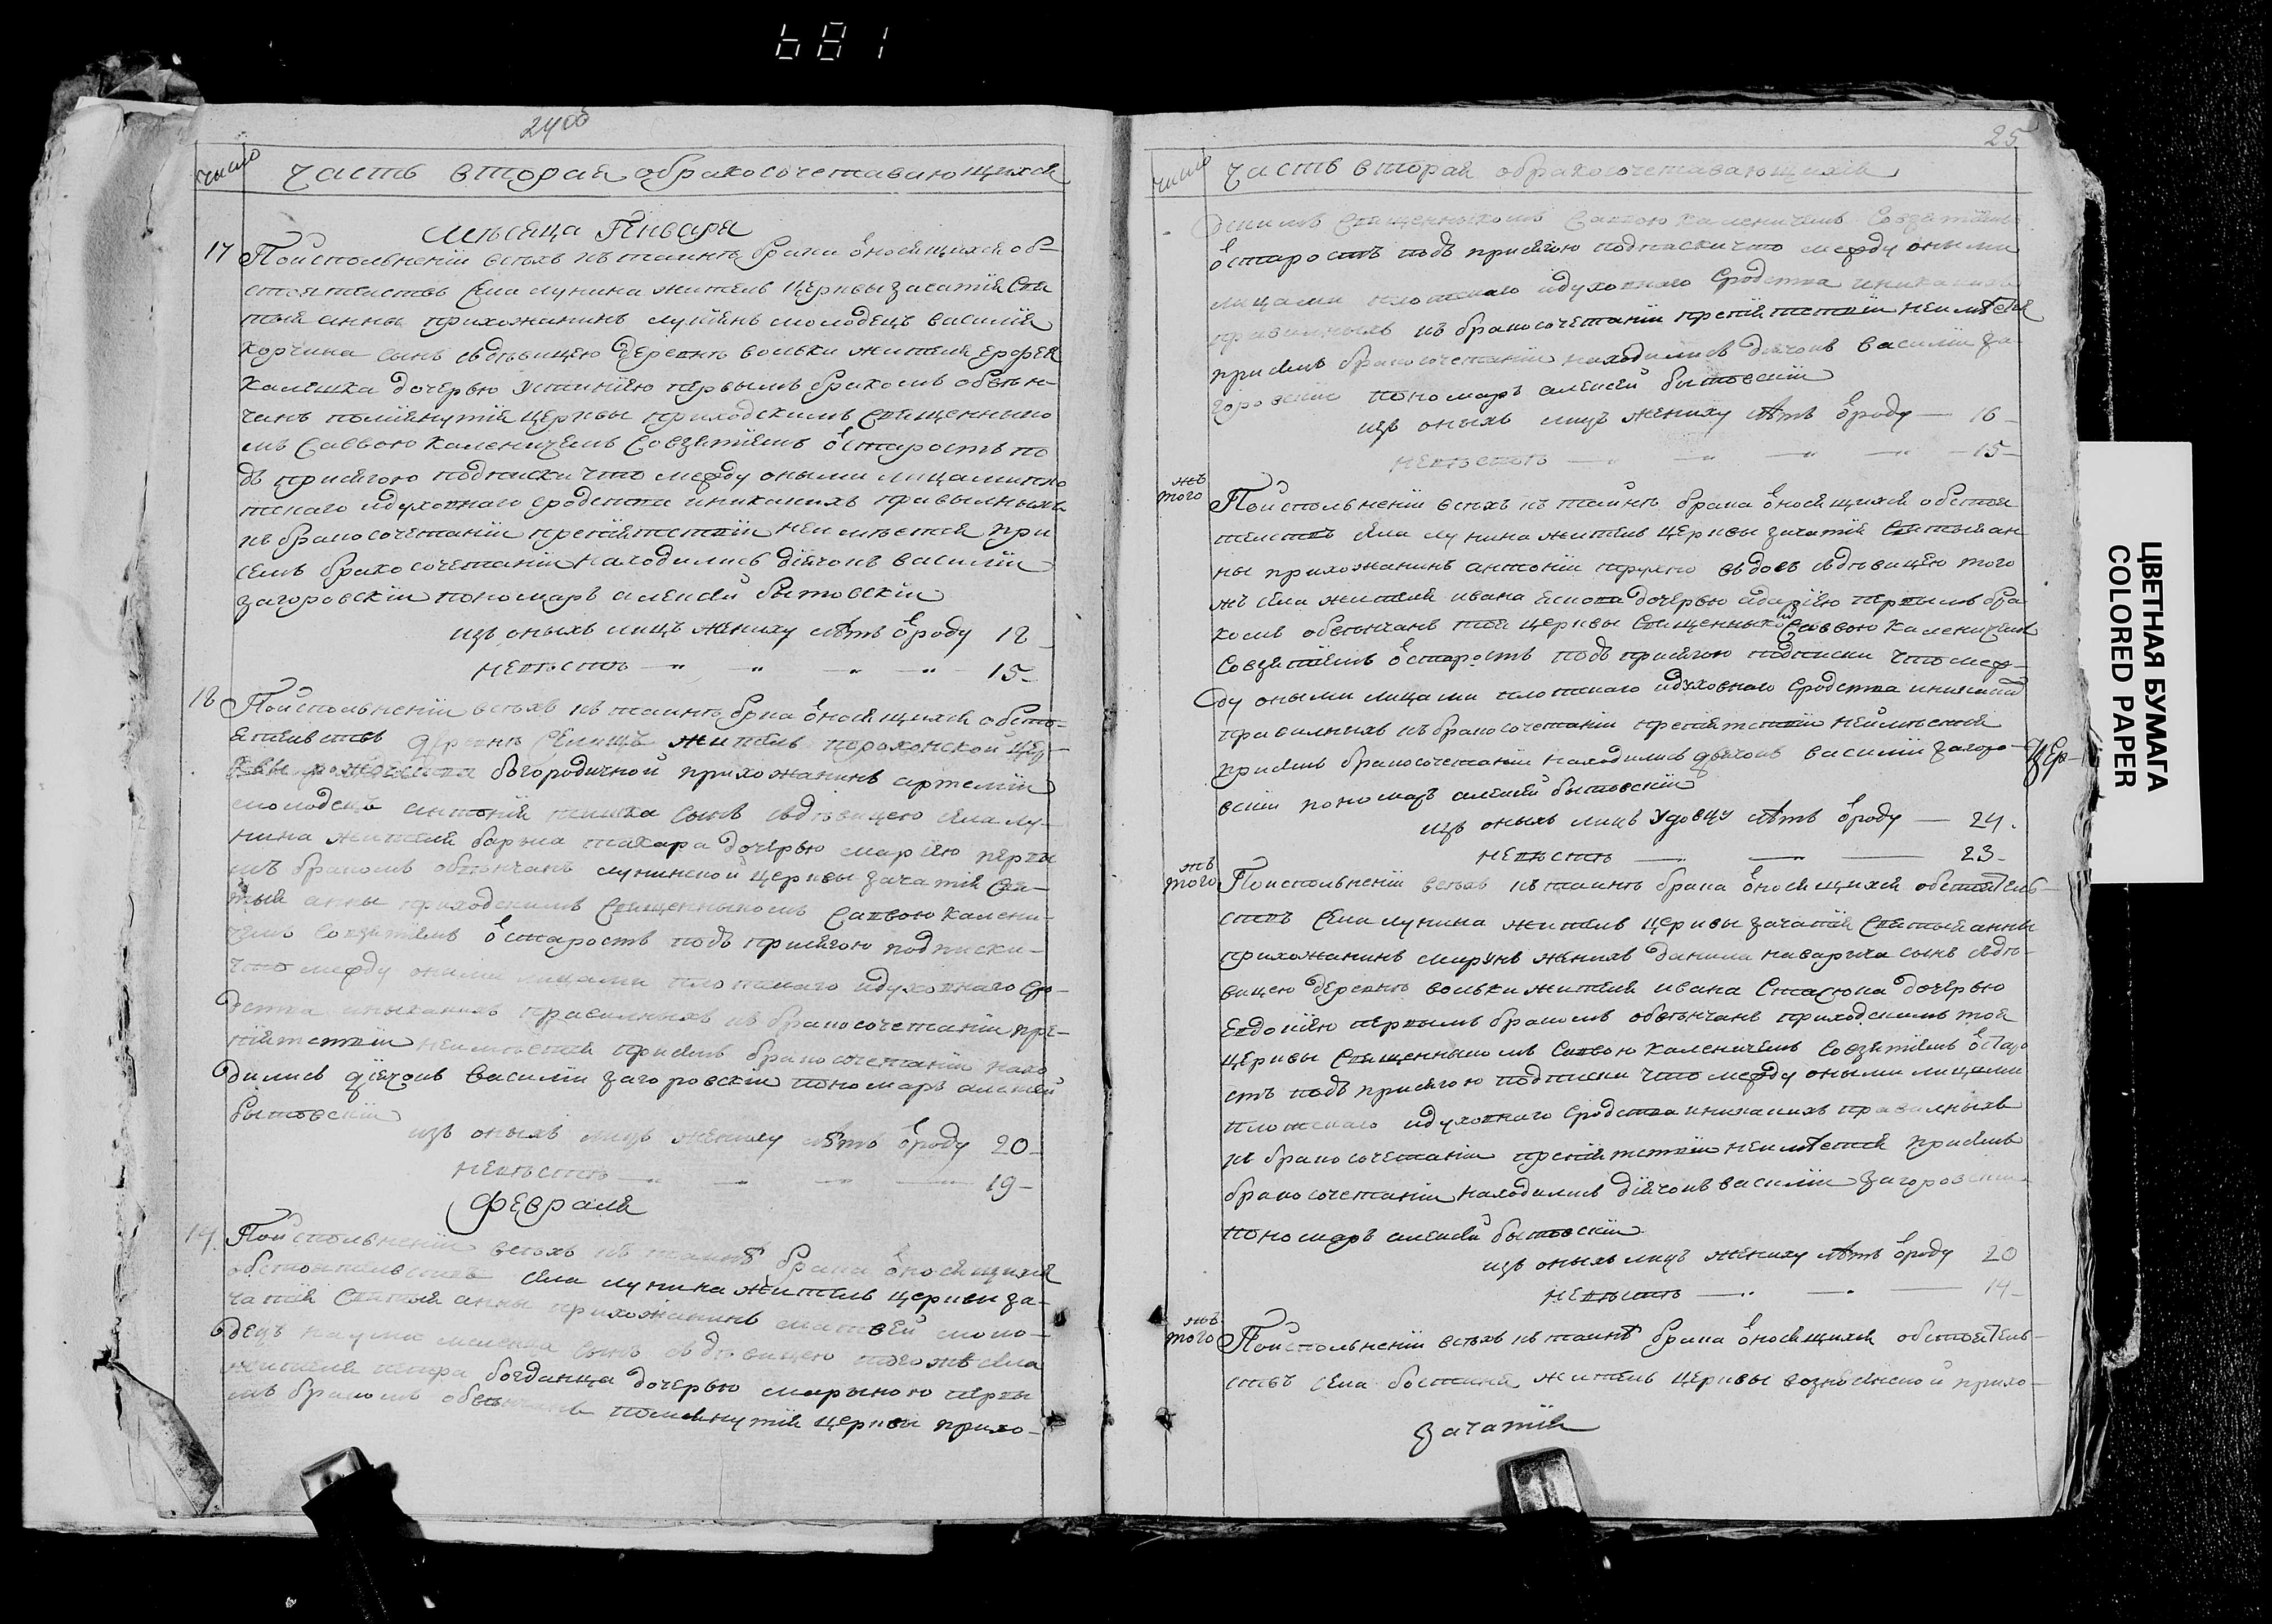 681
24об
число
Часть вторая обракосочетавающихся
Мѣсяца Генваря
17 Поисполненіи всѣхъ къ таинтѣ брака относящихся об-
стоятелствъ села лунина житель церквы зачатія Свя
тыя анны прихожанинъ лукіенъ молодецъ василія
корчика сынъ здѣвицею деревнѣ вольки жителя ерофея
калешка дочерью устиніею первымъ бракомъ обвѣн-
чанъ помянутія церквы приходскимъ Священнико
мъ Саввою каленичемъ Совзятіемъ остарость по
дъ присягою подписки что между оными лицами пло
тскаго идуховнаго сродства иникакихъ правилныхъ
къ бракосочетаніи препятствіи неимѣется при
семъ бракосочетаніи находились діячокъ василіи
загоровскіи пономаръ алексѣй бытовскіи
изъ оныхъ лицъ жениху лѣтъ отроду 18
невѣстѣ — " " " 15
18 Поисполненіи всѣхъ къ таинтѣ брка относящихся обсто-
ятелвствъ деревнѣ Селищъ житель порохонской цер-
квы рожества богородичной прихожанинъ артеміи
молодецъ антонія сынъ здѣвицею села лу-
нина жителя дочерью маріею первы
мъ бракомъ обвѣнчанъ лунинской церквы зачатія Свя-
тыя анны приходскимъ Священникомъ Саввою калени-
чемъ Совзятіемъ остарость подъ присягою подписки-
что между оными лицами плотскаго идуховнаго сро-
дства иныкакихъ правилныхъ къ бракосочетаніи пре-
пятствіи неимѣется присемъ бракосочетаніи нахо
дились діячокъ василіи загоровскіи пономаръ алексѣй
бытовскіи
изъ оныхъ лицъ жениху лѣтъ отроду 20
невѣстѣ — 19
Февраля
14 Поисполненіи всѣхъ къ таинтѣ брака относящихся
обстоятелвствъ села лунина житель церкви за-
чатія Святыя анны прихожанинъ матвей моло-
децъ наума сынъ здѣвицею того жъ села
жителя петра богданца дочерью марыною первы
мъ бракомъ обвѣнчанъ помянутія церкви прихо-
25
число
Часть вторая обракосочетавающихся
дскимъ Священникомъ Саввою каленичемъ Совзятіемъ
остарость подъ присягою подписки что между оными
лицами плотскаго идуховнаго Сродства иникакихъ
правилныхъ къ бракосочетаніи препятствіи неимѣется
присемъ бракосочетаніи находились діячокъ василіи за
горовскіи пономаръ алексѣй бытовскіи
изъ оныхъ лицъ жениху лѣтъ отроду — 16
невѣстѣ — 15
жъ
того Поисполненіи всѣхъ къ таинтѣ брака относящихся обстоя
телствъ села лунина житель церквы зачатія Святыя ан
ны прихожанинъ антоніи вдовъ здѣвицею того
жъ села жителя ивана дочерью первымъ бра
комъ обвѣнчанъ тоя церквы Священникомъ Саввою каленичемъ
Совзятіемъ остарость подъ присягою подписки что меж-
ду оными лицами плотскаго идуховнаго Сродства иникакихъ
правилныхъ къ бракосочетаніи препятствіи неимѣется
присемъ бракосочетаніи находились дьячокъ василіи загоро-
вскіи пономаръ алексѣй бытовскіи
Цер-
изъ оныхъ лицъ удовцу лѣтъ отроду — 24
невѣстѣ — 23
жъ
того Поисполненіи всѣхъ къ таинтѣ брака относящихся обстоятель-
ствъ села лунина житель церквы зачатія Святыя анны
прихожанинъ женихъ данила сынъ здѣ-
вицею деревнѣ вольки жителя ивана Стасюка дочерью
Евдокіею первымъ бракомъ обвѣнчанъ приходскимъ тоя
церквы Священникомъ Саввою каленичемъ Совзятіемъ остаро
сть подъ присягою подписки что между оными лицами
плотскаго идуховнаго Сродства иникакихъ правилныхъ
къ бракосочетаніи препятствіи неимѣется присемъ
бракосочетаніи находились діячокъ василіи загоровскіи
пономаръ алексѣй бытовскіи
изъ оныхъ лицъ жениху лѣтъ отроду 20
невѣстѣ — 14
жъ
того Поисполненіи всѣхъ къ таинтѣ брака относящихся обстоятель-
ствъ села бостыня житель церквы вознесенской прихо-
зачатія
ЦВЕТНАЯ БУМАГА
COLORED PAPER